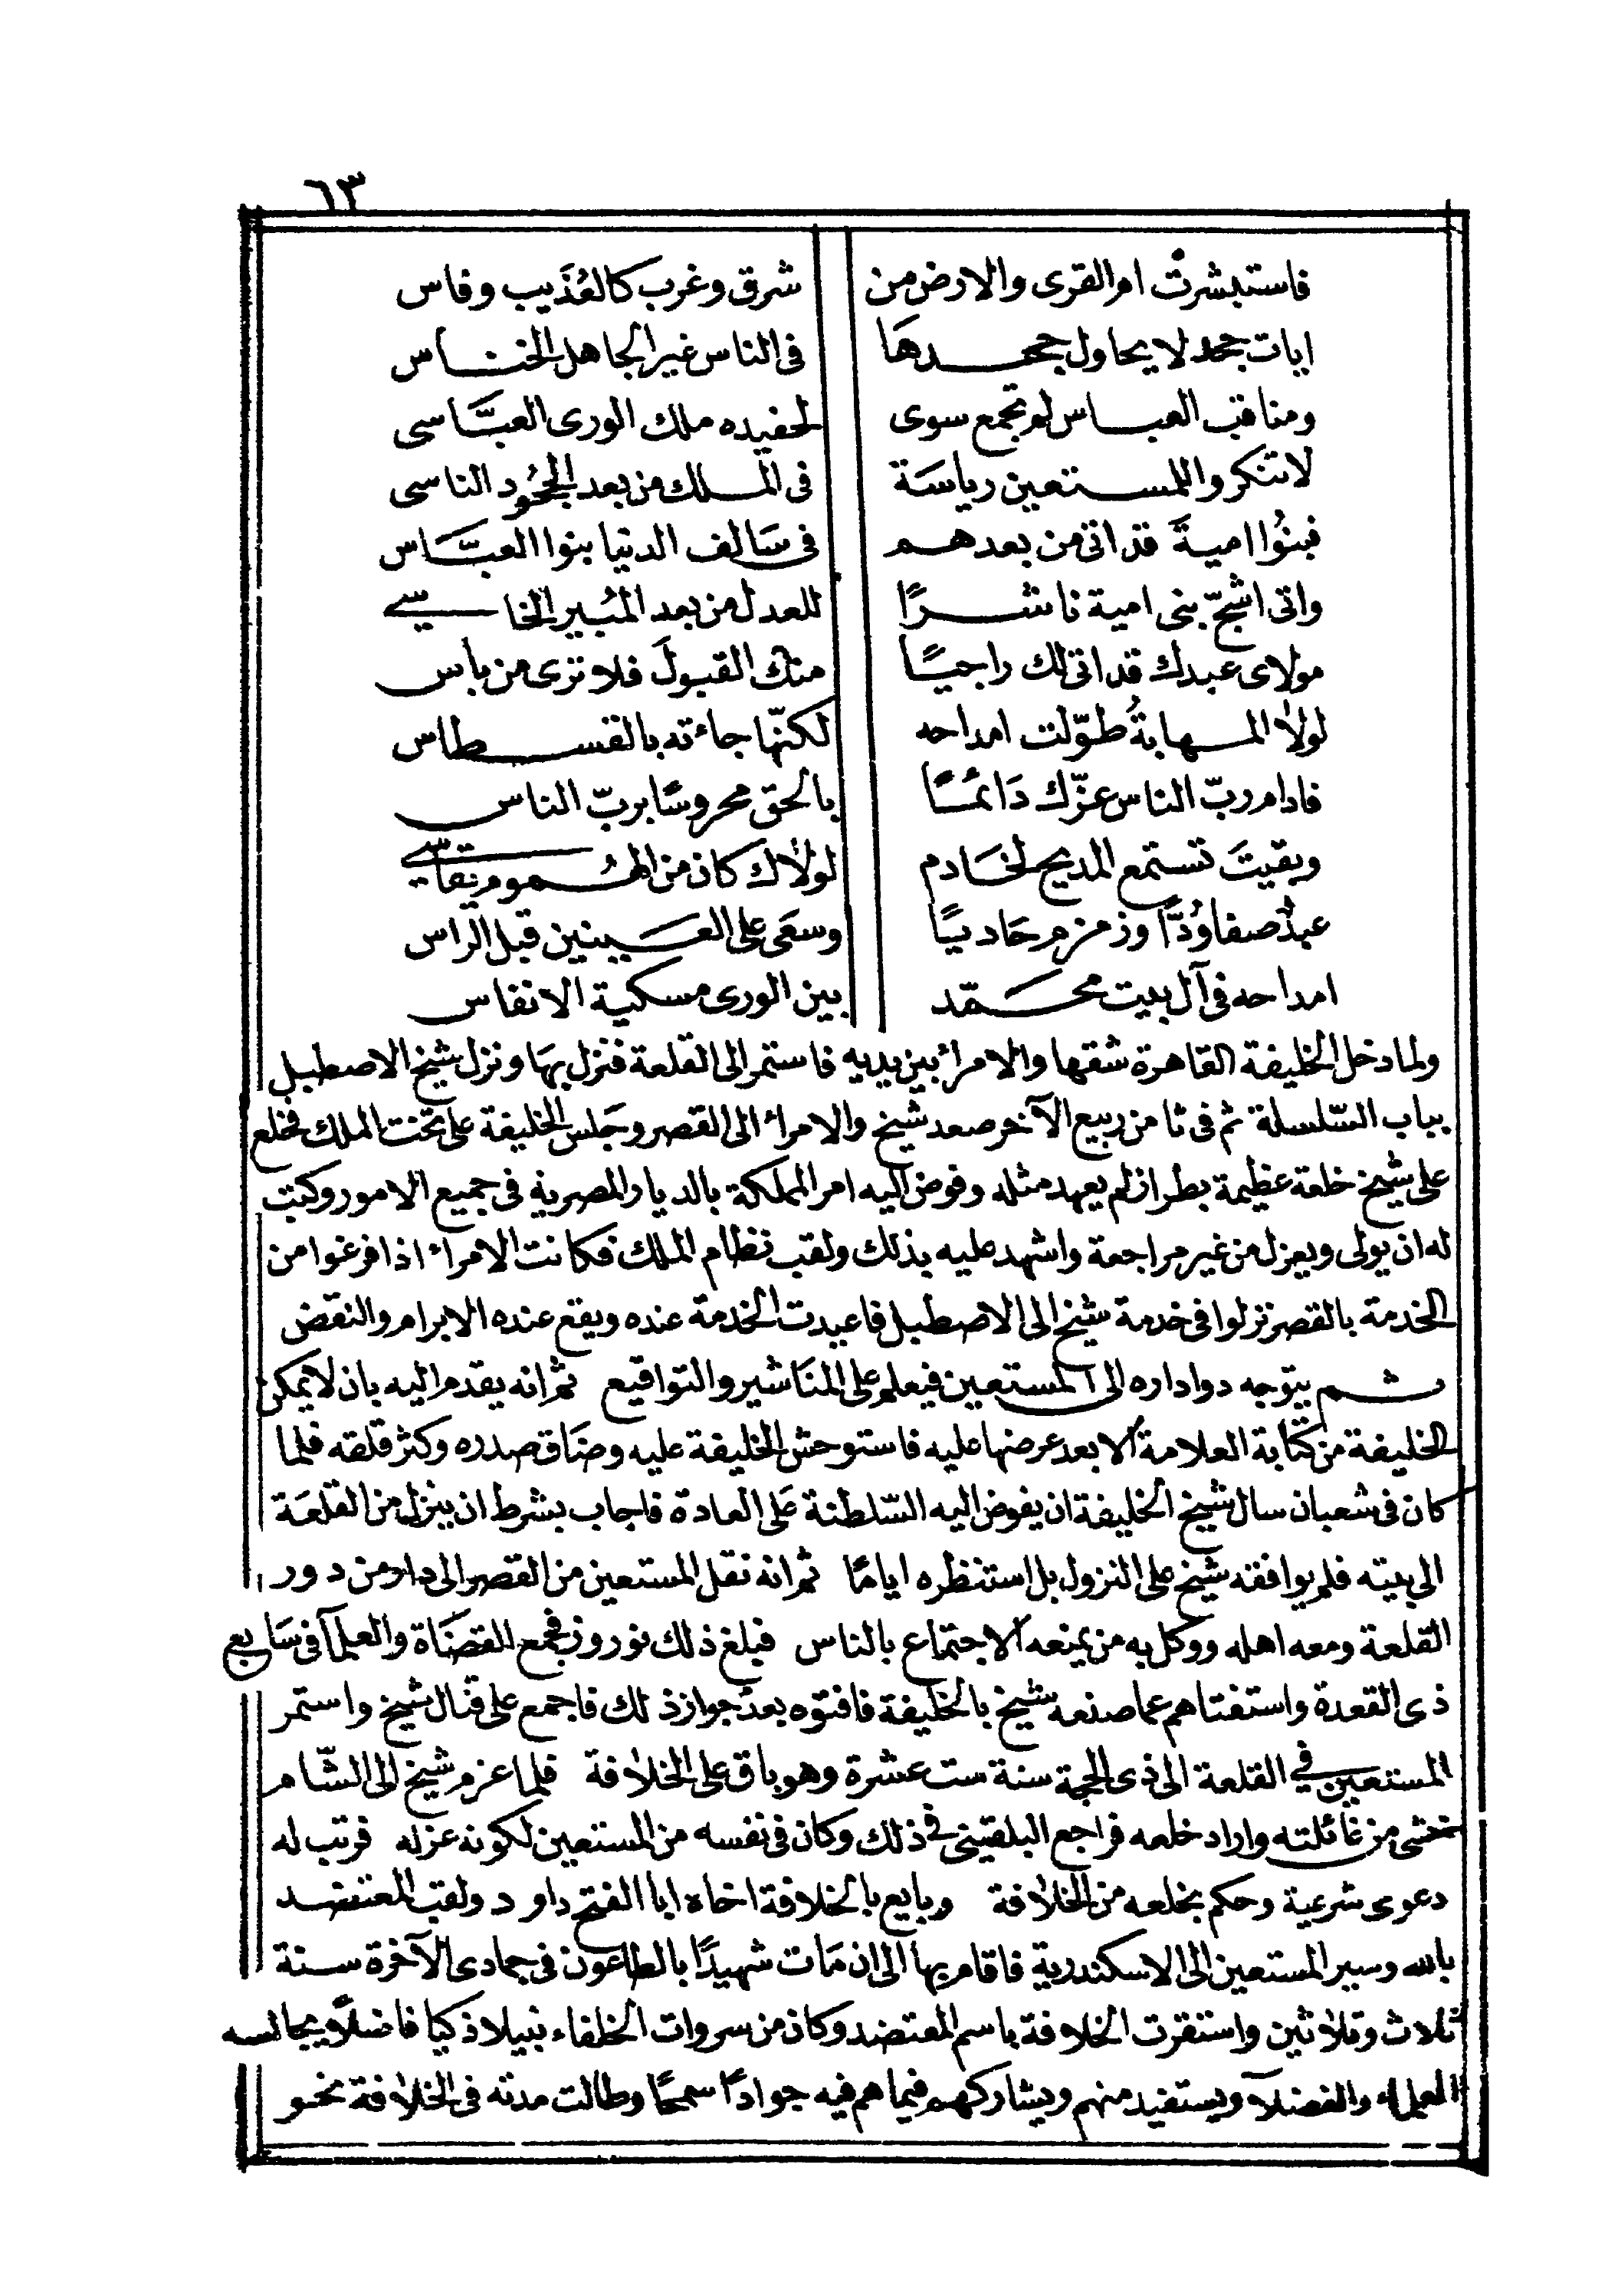 ٦٣
فاستبشرت ام القرى والارض من شرق وغرب كالعُذَيب وفاس
ايات مجد لا يحاول جحدهَا فى الناس غير الجاهل الخناس
ومناقب العباس لم تجمع سوى لحفيده ملك الورى العبَّاسى
لا تنكروا للمستعين رياسَة فى الملك من بعد الجحُود الناسى
فبنُوا اميةَ قد اتى من بعدهم فى سَالف الدنيا بنوا العبَّاس
واتى اشجّ بنى امية ناشرًا للعدل من بعد المُبير الخاسى
مولاى عبدك قد اتى لك راجيًا منك القبولَ فلا ترى من باس
لولا المهابةُ طوّلت امداحه لكنّها جاءته بالقسطاس
فادام ربّ الناس عزّك دَائمًا بالحق محروسًا بربّ الناس
وبقيتَ تستمع المديح لخَادم لولاك كان من الهُموم يقاسى
عبدٌ صفا وُدًّا وزمزم حَاديًا وسعَى على العَينين قبل الراس
امداحه فى آل بيت محَمّد بين الورى مسكية الانفاس
ولما دخل الخليفة القاهرة شقها والامراء بين يديه فاستمر الى القلعة فنزل بهَا ونزل شيخ الاصطبل
بباب السّلسلة ثم فى ثامن ربيع الآخر صعد شيخ والامراء الى القصر وجَلس الخليفة على تخت الملك فخلع
على شيخ خلعة عظيمة بطراز لم يعهد مثله وفوض اليه امر المملكة بالديار المصرية فى جميع الامور وكتب
له ان يولى ويعزل من غير مراجعة واشهد عليه بذلك ولقب نظام الملك فكانت الامراء اذا فرغوا من
الخدمة بالقصر نزلوا فى خدمة شيخ الى الاصطبل فاعيدت الخدمة عنده ويقع عنده الابرام والنقض
ثم يتوجه دواداره الى المستعين فيعلم على المنَاشير والتواقيع ثم انه يقدم اليه بان لا يمكن
الخليفة من كتابة العلامة الا بعد عرضها عليه فاستوحش الخليفة عليه وضَاق صدره وكثر قلقه فلما
كان فى شعبان سال شيخ الخليفة ان يفوض اليه السّلطنة عَلى العادة فاجاب بشرط ان ينزل من القلعَة
الى بيته فلم يوافقه شيخ على النزول بل استنظره ايامًا ثم انه نقل المستعين من القصر الى دار من دور
القلعة ومعه اهله ووكل به من يمنعه الاجتماع بالناس فبلغ ذلك نوروز فجمع القضَاة والعلمآ فى سَابع
ذى القعدة واستفتاهم عما صنعه شيخ بالخليفة فافتوه بعدم جواز ذلك فاجمع على قتال شيخ واستمر
المستعين فى القلعة الى ذى الحجة سنة ست عشرة وهو باق على الخلافة فلما عزم شيخ الى الشّام
خشى من غائلته واراد خلعه فراجع البلقينى فى ذلك وكان فى نفسه من المستعين لكونه عزله فرتب له
دعوى شرعية وحكم بخلعه من الخلافة وبايع بالخلافة اخاه ابا الفتح داود ولقب المعتضد
بالله وسير المستعين الى الاسكندرية فاقام بها الى ان مَات شهيدًا بالطاعون فى جمادى الآخرة سنة
ثلاث وثلاثين واستقرت الخلافة باسم المعتضد وكان من سروات الخلفاء نبيلا ذكيا فاضلًا يجالسه
العلماء والفضلآ ويستفيد منهم ويشاركهم فيما هم فيه جوادًا سمحًا وطالت مدته فى الخلافة نحو